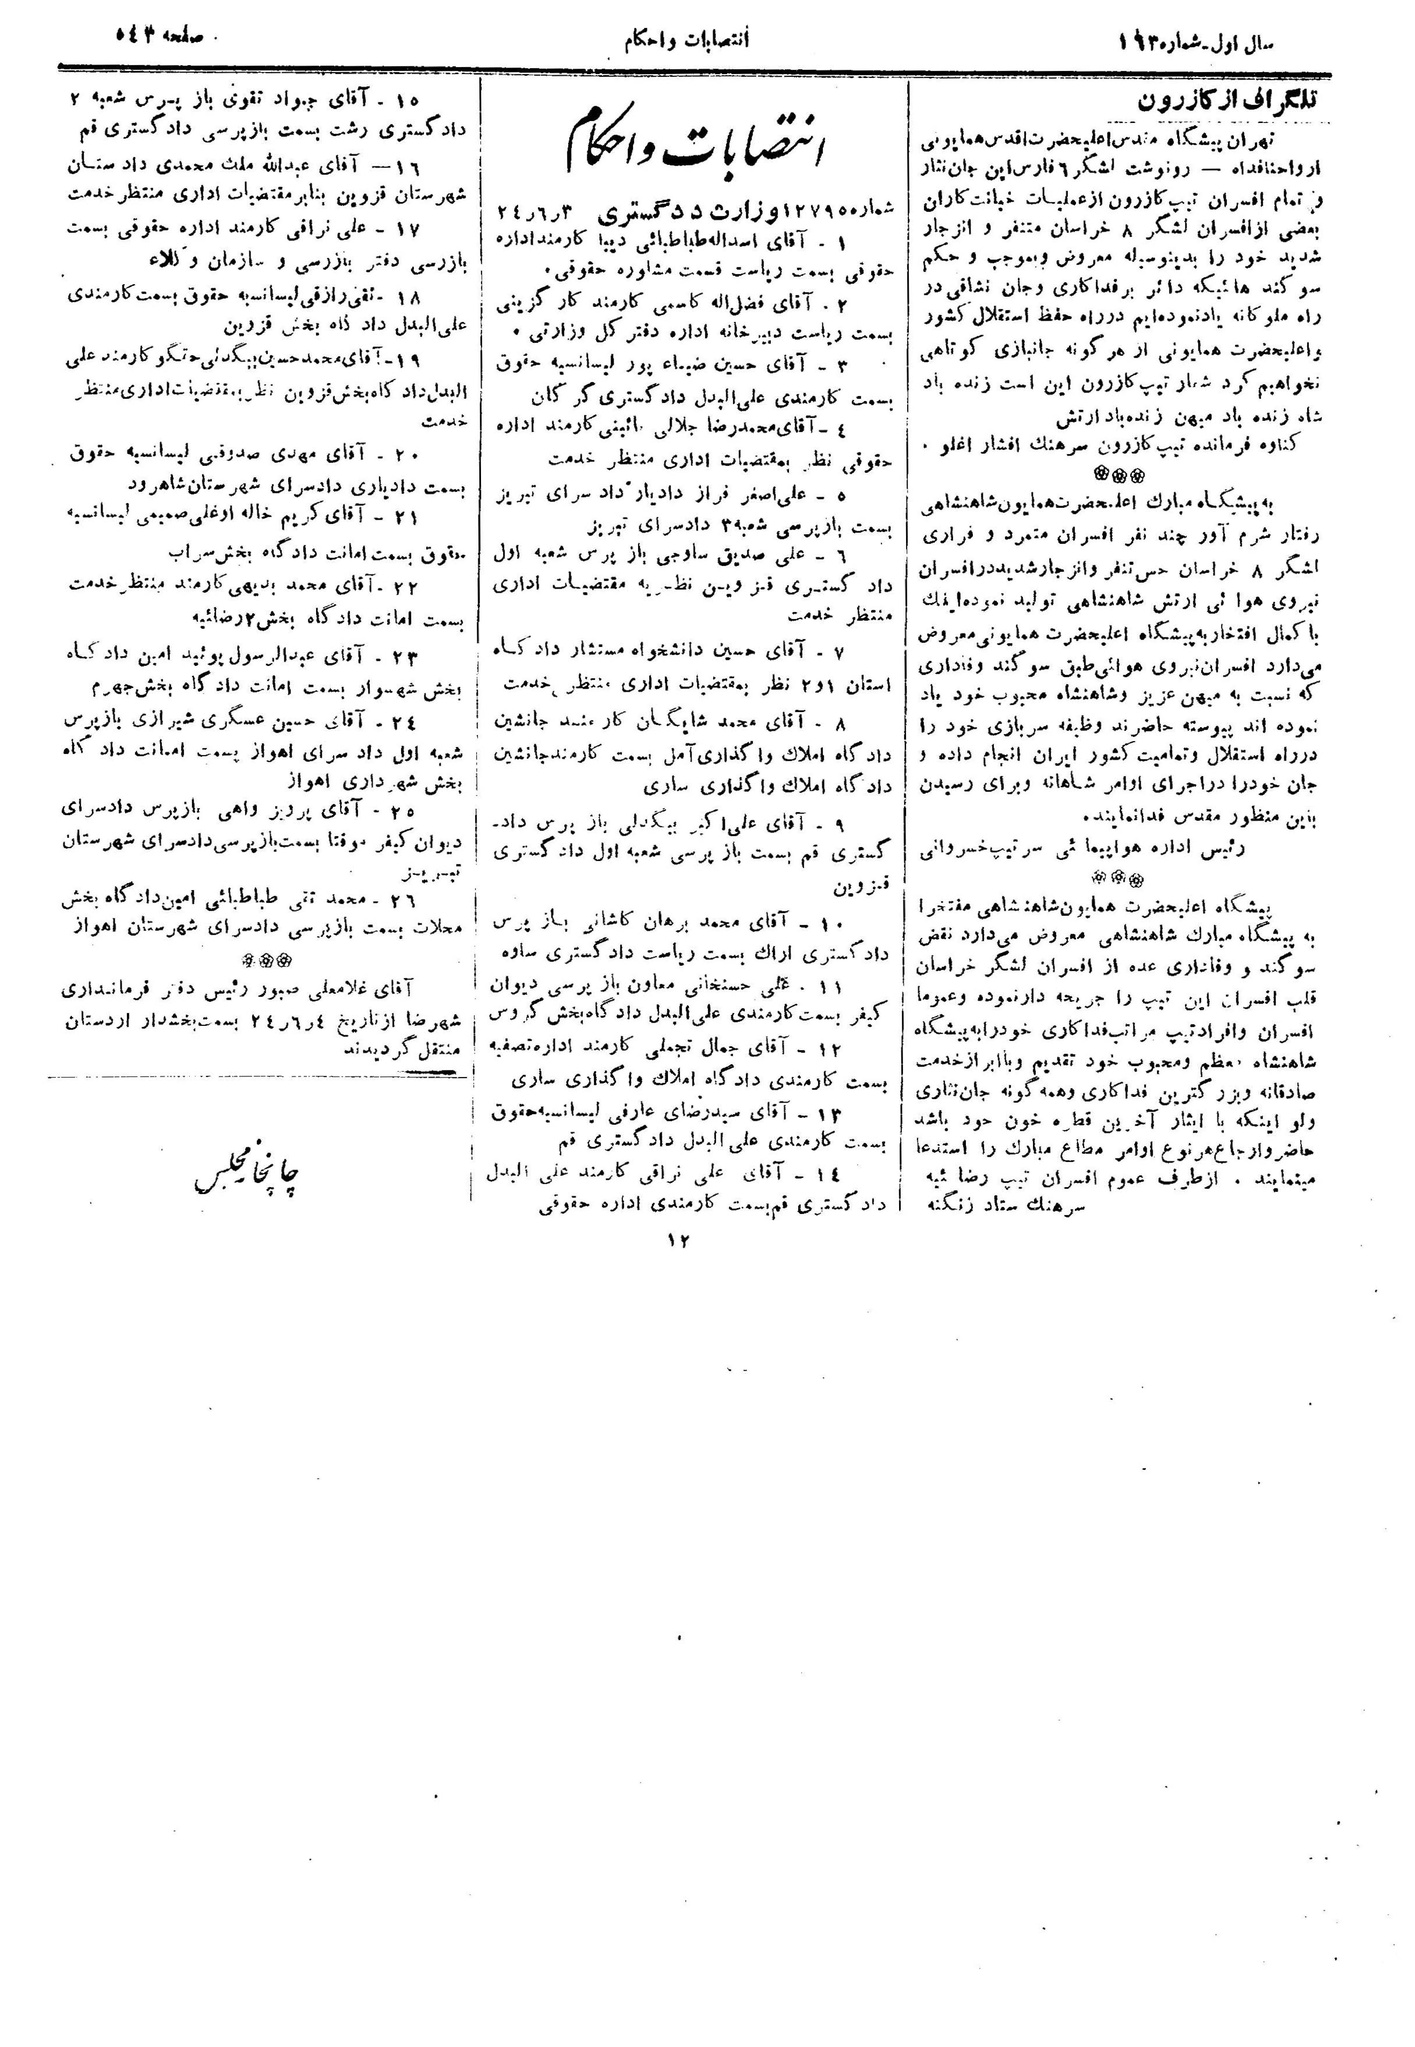 سال اول-شماره ۱۶۳
انتصابات و احکام
صفحه ٥٤٣
تلگراف از کازرون
تهران پیشگاه مقدس اعلیحضرت اقدس همایونی
ارواحنافداه — رونوشت لشگر ٦ فارس این جان‌نثار
و تمام افسران تیپ کازرون از عملیات خیانت‌کاران
بعضی از افسران لشگر ۸ خراسان متنفر و انزجار
شدید خود را بدینوسیله معروض وبموجب و حکم
سوگند هائیکه دائر برفداکاری وجان نشاقی در
راه ملوکانه یادنموده‌ایم درراه حفظ استقلال کشور
واعلیحضرت همایونی از هرگونه جانبازی کوتاهی
نخواهیم کرد شعار تیپ کازرون این است زنده باد
شاه زنده باد میهن زنده‌باد ارتش
کناوه فرمانده تیپ کازرون سرهنك افشار اغلو .
به پیشگاه مبارك اعلیحضرت همایون شاهنشاهی
رفتار شرم آور چند نفر افسران متمرد و فراری
لشگر ۸ خراسان حس تنفر وانزجار شدید در افسران
نیروی هوائی ارتش شاهنشاهی تولید نموده اینك
با کمال افتخار به پیشگاه اعلیحضرت همایونی معروض
می‌دارد افسران نیروی هوائی طبق سوگند وفاداری
که نسبت به میهن عزیز وشاهنشاه محبوب خود یاد
نموده اند پیوسته حاضرند وظیفه سربازی خود را
درراه استقلال وتمامیت کشور ایران انجام داده و
جان خودرا دراجرای اوامر شاهانه وبرای رسیدن
باین منظور مقدس فدانمایند.
رئیس اداره هواپیمائی سرتیپ خسروانی
پیشگاه اعلیحضرت همایون شاهنشاهی مفتخرا
به پیشگاه مبارك شاهنشاهی معروض می‌دارد نقض
سوگند و وفاداری عده از افسران لشگر خراسان
قلب افسران این تیپ را جریحه دارنموده وعموما
افسران وافراد تیپ مراتب فداکاری خودرا به پیشگاه
شاهنشاه معظم ومحبوب خود تقدیم وباابراز خدمت
صادقانه وبزرگترین فداکاری وهمه گونه جان‌نثاری
ولو اینکه با ایثار آخرین قطره خون خود باشد
حاضر وارجاع هرنوع اوامر مطاع مبارك را استدعا
مینمایند . از طرف عموم افسران تیپ رضائیه
سرهنك ستاد زنگنه
انتصابات و احکام
شماره ۱۲۷۹۵ وزارت دادگستری ۳ر٦ر۲٤
۱ - آقای اسداله طباطبائی دیبا کارمند اداره
حقوقی بسمت ریاست قسمت مشاوره حقوقی.
۲ - آقای فضل‌اله کاسمی کارمند کارگزینی
بسمت ریاست دبیرخانه اداره دفتر کل وزارتی .
۳ - آقای حسین ضیاء پور لیسانسیه حقوق
بسمت کارمندی علی‌البدل دادگستری گرگان
٤ - آقای محمدرضا جلالی نائینی کارمند اداره
حقوقی نظر بمقتضیات اداری منتظر خدمت
٥ - علی‌اصغر فراز دادیار دادسرای تبریز
بسمت بازپرسی شعبه ۳ دادسرای تبریز
٦ - علی صدیق ساوجی باز پرس شعبه اول
دادگستری قزوین نظربه مقتضیات اداری
منتظر خدمت
۷ - آقای حسین دانشخواه مستشار دادگاه
استان ۱و۲ نظر بمقتضیات اداری منتظر خدمت
۸ - آقای محمد شایگان کارمند جانشین
دادگاه املاك واگذاری آمل بسمت کارمند جانشین
دادگاه املاك واگذاری ساری
۹ - آقای علی‌اکبر بیگدلی باز پرس داد-
گستری قم بسمت بازپرسی شعبه اول دادگستری
قزوین
۱۰ - آقای محمد برهان کاشانی باز پرس
دادگستری اراك بسمت ریاست دادگستری ساوه
۱۱ - علی حسنخانی معاون بازپرسی دیوان
کیفر بسمت کارمندی علی‌البدل دادگاه بخش گروس
۱۲ - آقای جمال تجملی کارمند اداره تصفیه
بسمت کارمندی دادگاه املاك واگذاری ساری
۱۳ - آقای سیدرضای عارفی لیسانسیه حقوق
بسمت کارمندی علی البدل دادگستری قم
۱٤ - آقای علی نراقی کارمند علی البدل
دادگستری قم بسمت کارمندی اداره حقوقی
۱٥ - آقای جواد تقوی باز پرس شعبه ۲
دادگستری رشت بسمت بازپرسی دادگستری قم
۱٦ — آقای عبدالله ملك محمدی دادستان
شهرستان قزوین بنابر مقتضیات اداری منتظر خدمت
۱۷ - علی نراقی کارمند اداره حقوقی بسمت
بازرسی دفتر بازرسی و سازمان وکلاء
۱۸ - تقی رازقی لیسانسیه حقوق بسمت کارمندی
علی‌البدل دادگاه بخش قزوین
۱۹ - آقای محمدحسین بیگدلی جنگو کارمند علی
البدل دادگاه بخش قزوین نظر بمقتضیات اداری منتظر
خدمت
۲۰ - آقای مهدی صدوقی لیسانسیه حقوق
بسمت دادیاری دادسرای شهرستان شاهرود
۲۱ - آقای کریم خاله اوغلی صمیمی لیسانسیه
حقوق بسمت امانت دادگاه بخش سراب
۲۲ - آقای محمد بدیهی کارمند منتظر خدمت
بسمت امانت دادگاه بخش ۲ رضائیه
۲۳ - آقای عبدالرسول یوئید امین دادگاه
بخش شهسوار بسمت امانت دادگاه بخش جهرم
۲٤ - آقای حسین عسگری شیرازی بازپرس
شعبه اول دادسرای اهواز بسمت امانت دادگاه
بخش شهرداری اهواز
۲٥ - آقای پرویز واهی بازپرس دادسرای
دیوان کیفر موقتا بسمت بازپرسی دادسرای شهرستان
تبریز
۲٦ - محمد تقی طباطبائی امین دادگاه بخش
محلات بسمت بازپرسی دادسرای شهرستان اهواز
آقای غلامعلی صبور رئیس دفتر فرمانداری
شهرضا از تاریخ ٤ر٦ر۲٤ بسمت بخشدار اردستان
منتقل گردیدند
چاپخانه مجلس
۱۲